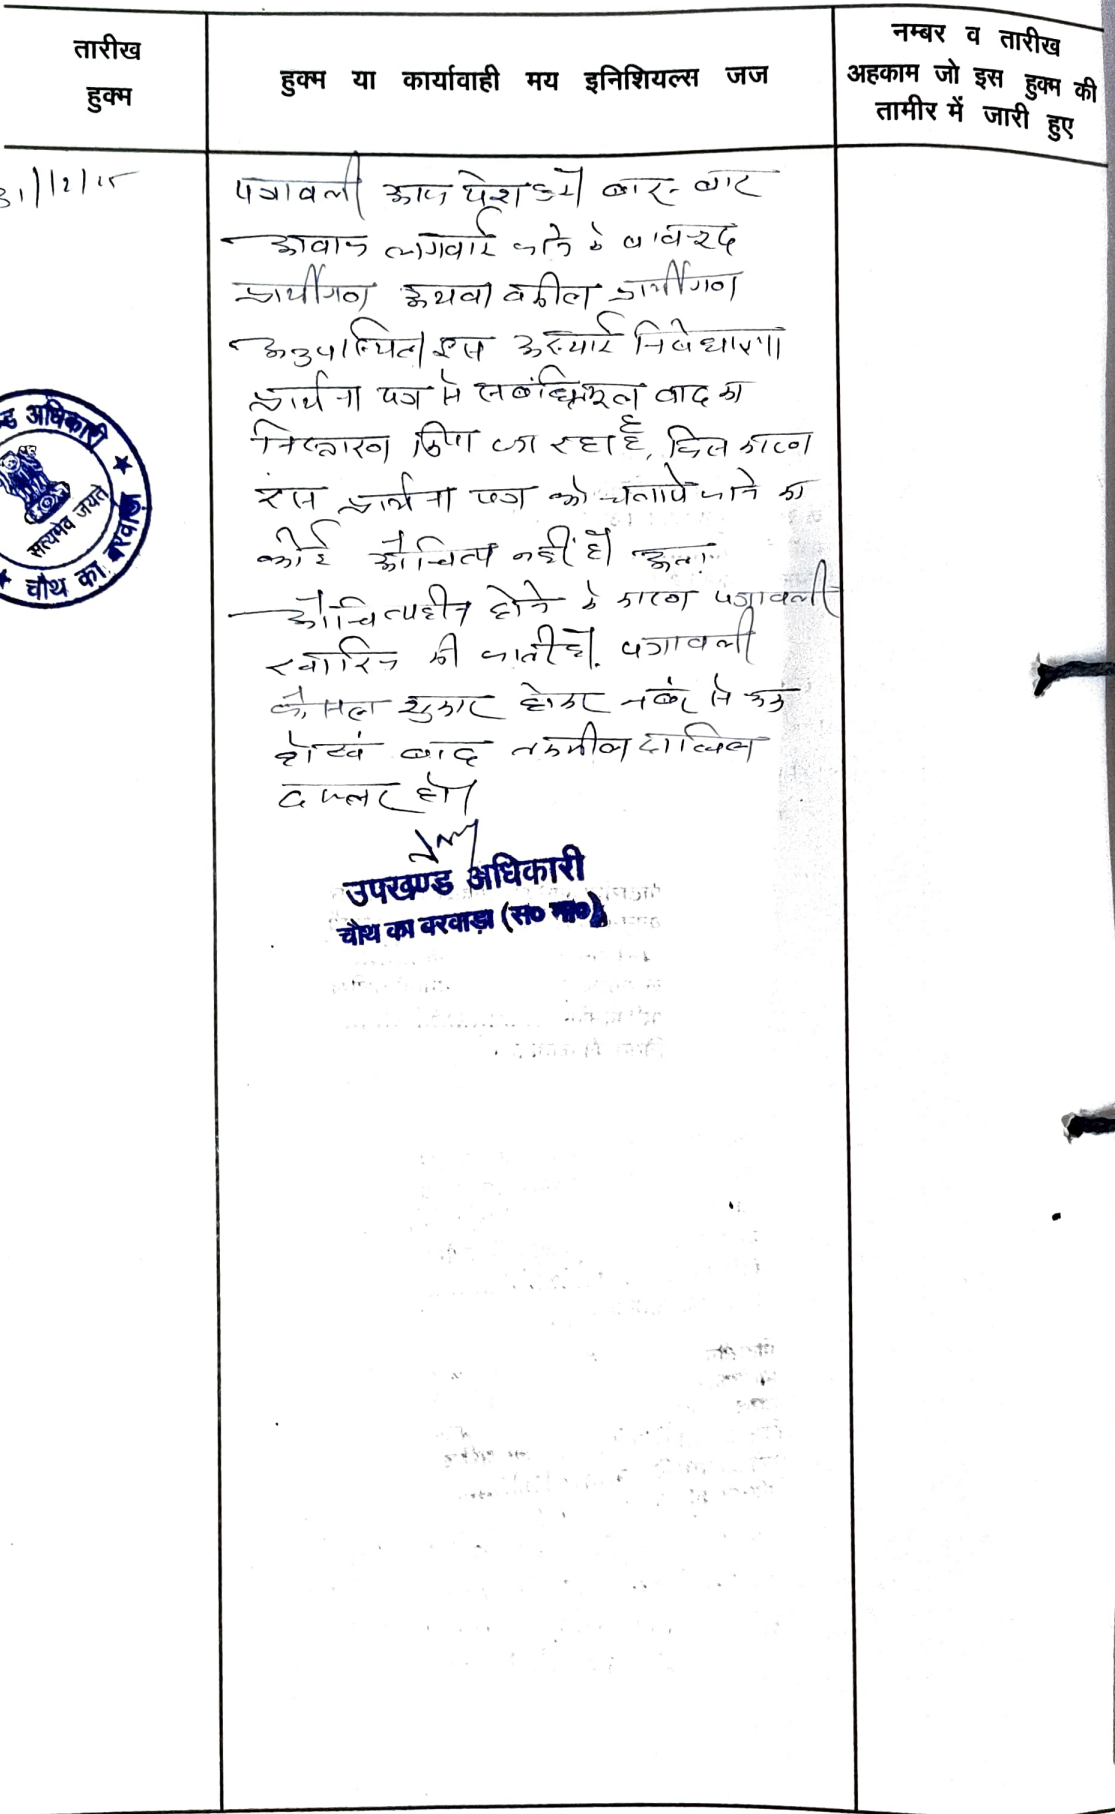 तारीख
हुक्म
हुक्म या कार्यावाही मय इनिशियल्स जज
नम्बर व तारीख
अहकाम जो इस हुक्म की
तामीर में जारी हुए
31/12/15
पत्रावली आज पेश हुयी बार-बार
आवाज लगवाई जाने के बावजूद
प्रार्थीगण अथवा वकील प्रार्थीगण
अनुपस्थित। इस अस्थाई निषेधाज्ञा
प्रार्थना पत्र से संबंधित मूल वाद का
निस्तारण किया जा रहा है, जिस कारण
इस प्रार्थना पत्र को चलाये जाने का
कोई औचित्य नहीं है। अतः
औचित्यहीन होने के कारण पत्रावली
खारिज की जाती है। पत्रावली
फैसल शुमार होकर नंबर से कम
हो एवं बाद तकमील दाखिल
दफ्तर हो।
उपखण्ड अधिकारी
चौथ का बरवाड़ा (स० मा०)
ण्ड अधिकारी
सत्यमेव जयते
चौथ का बरवाड़ा